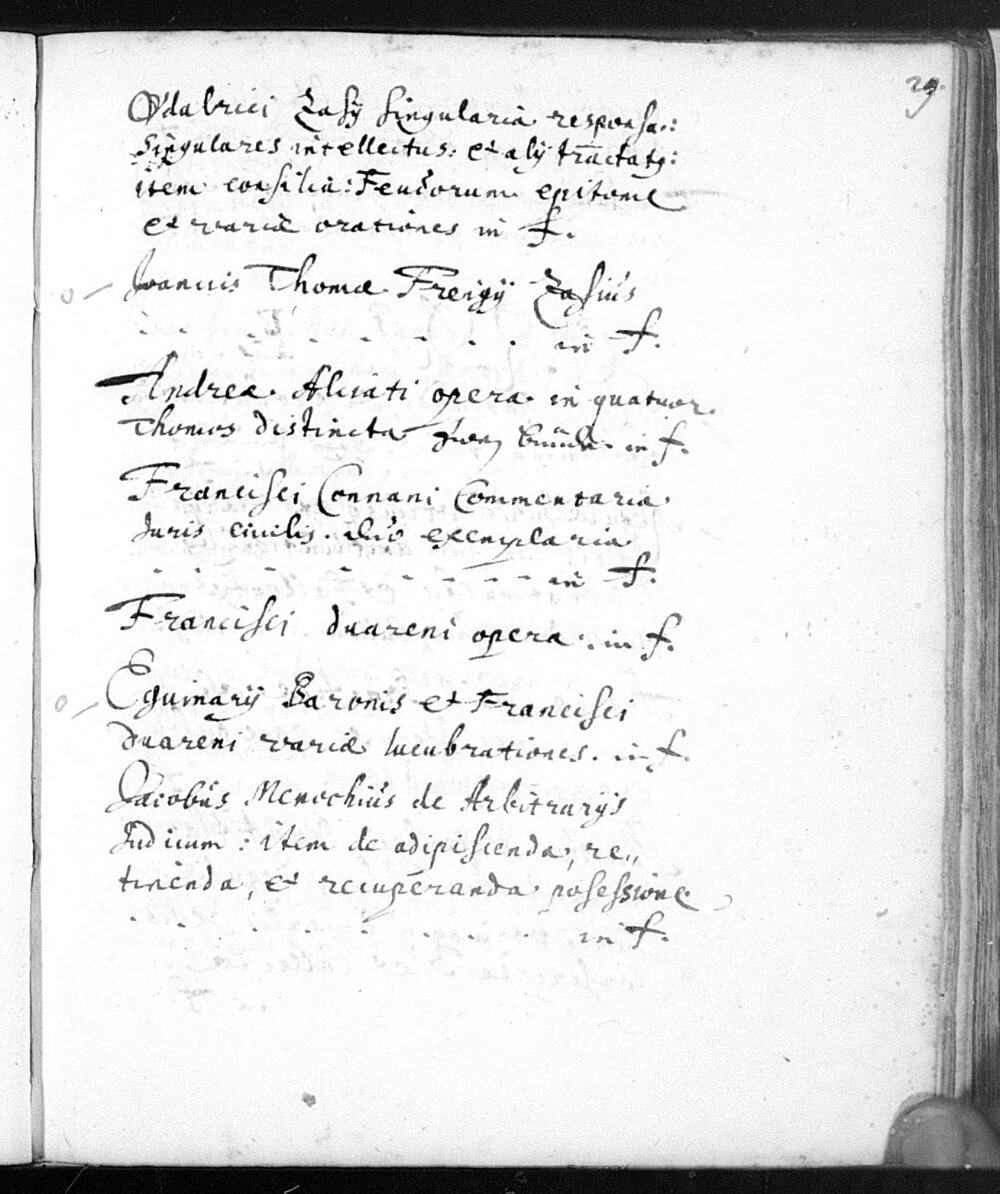 29.
Vdalrici Zasÿ singularia responsa:
Singulares intellectus: et alÿ tractatq:
item consilia: Feudorum epitome
et variæ orationes in f.
Joannis Thomæ Freigÿ Zasius
in f.
Andreæ Alciati opera in quatuor
Thomos distincta zweÿ in f.
Francisci Connani Commentaria
Juris ciuilis duo exemplaria
in f.
Francisci duareni opera. in f.
Eguinarÿ Baronis et Francisci
duareni variæ lucubrationes. in f.
Jacobus Menochius de Arbitrarÿs
Judicum: item de adipiscenda, re„
tinenda, et recuperanda posessione
in f.